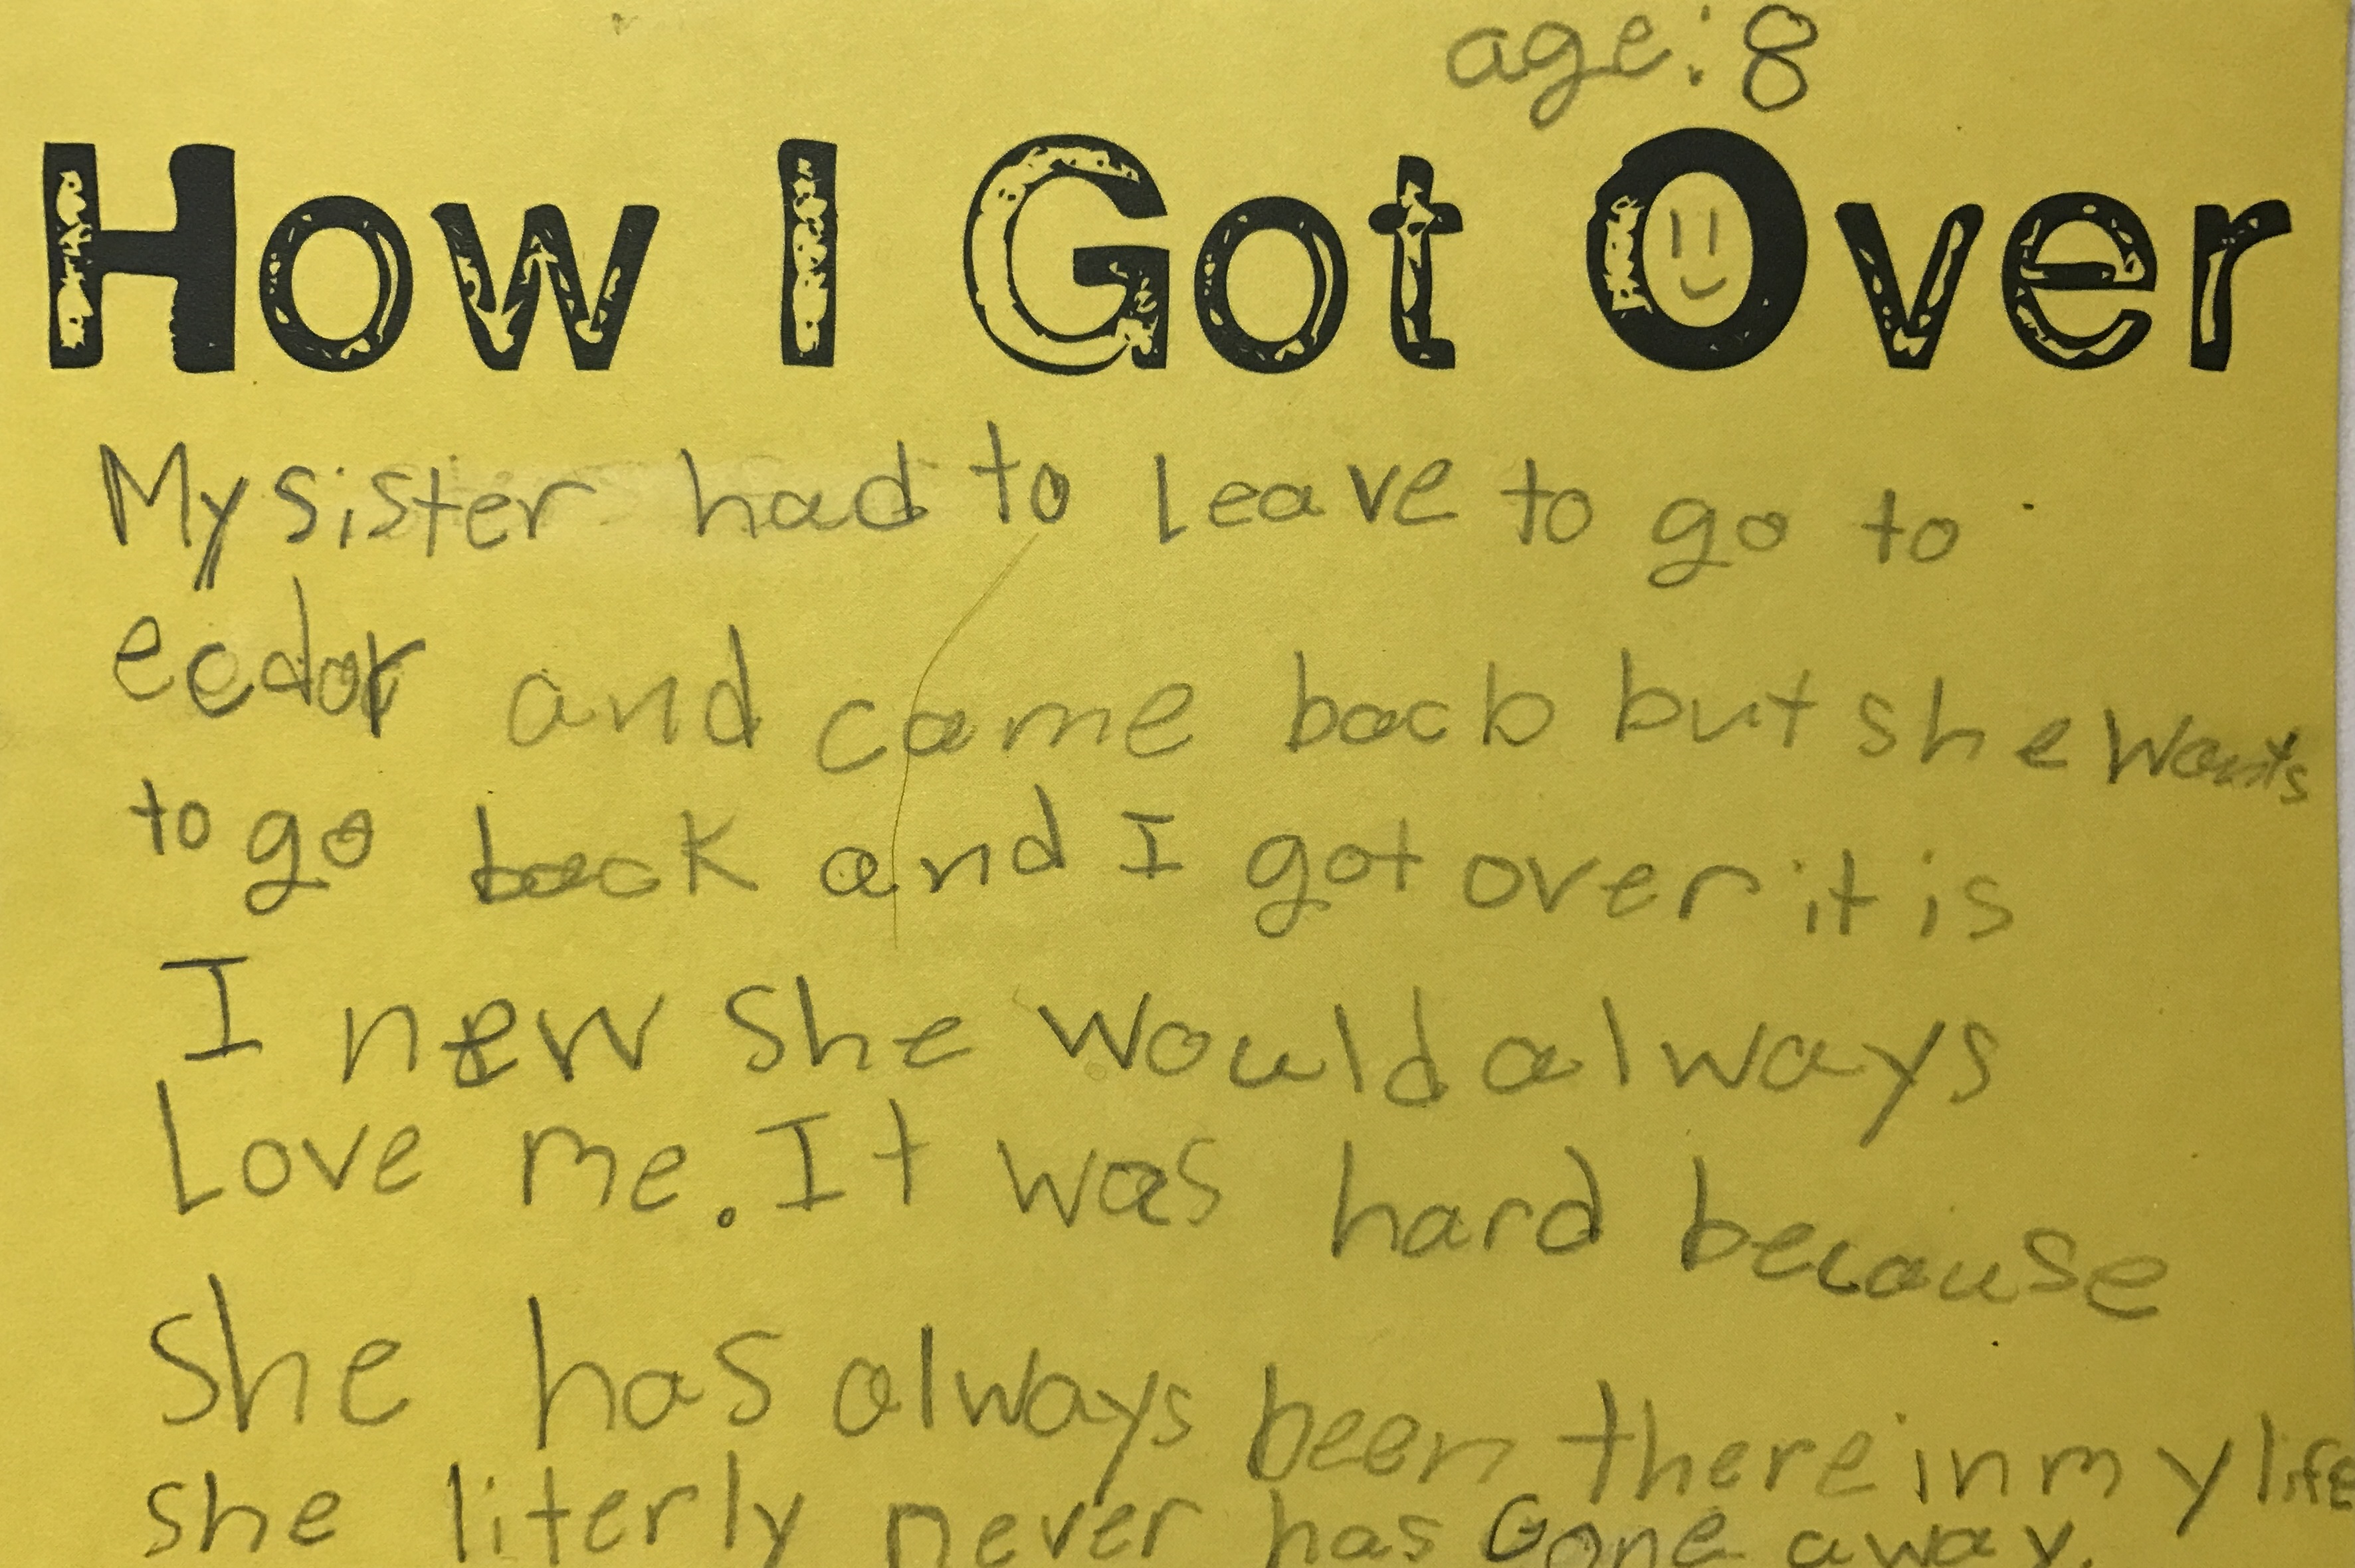 age: 8
How I Got Over
My sister had to leave to go to
ecdor and came bacb but she wants
to go back and I got over it is
I new she would always
Love me. It was hard because
She has always been there in my life
she literly never has Gone away.